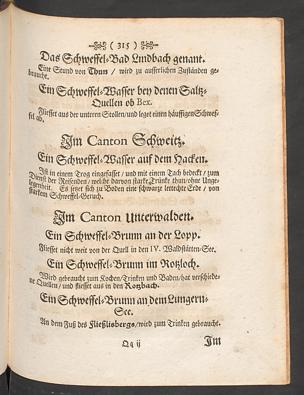 ( 315 )
Das Schweffel-Bad Lindbach genant.
Eine Stund von Thun / wird zu ausserlichen Zuständen ge-
braucht.
Ein Schweffel-Wasser bey denen Saltz-
Quellen ob Bex.
Fliesset aus der unteren Stollen / und leget einen häuffigen Schwef-
fel ab.
Im Canton Schweitz.
Ein Schweffel-Wasser auf dem Hacken.
Ist in einem Trog eingefasset / und mit einem Tach bedeckt / zum
Dienst der Reisenden / welche darvon starke Trünke thun / ohne Unge-
legenheit. Es setzet sich zu Boden eine schwarze lettechte Erde / von
starkem Schweffel-Geruch.
Im Canton Unterwalden.
Ein Schweffel-Brunn an der Lopp.
Fliesset nicht weit von der Quell in den IV. Waldstätten-See.
Ein Schweffel-Brunn im Rotzloch.
Wird gebraucht zum Kochen / Trinken und Baden / hat verschiede-
ne Quellen / und fliesset aus in den Rotzbach.
Ein Schweffel-Brunn an dem Lungern-
See.
An dem Fuß des Fließlisbergs / wird zum Trinken gebraucht.
Qq ij Im